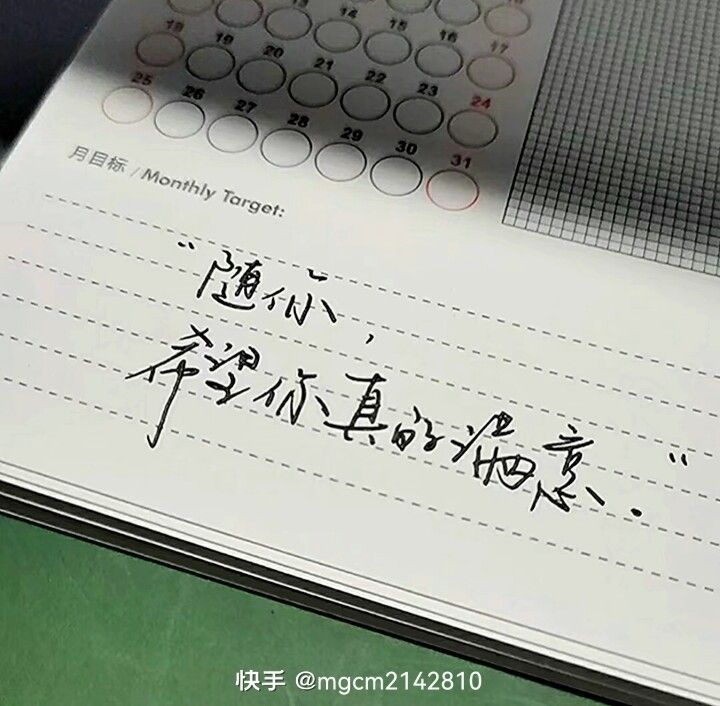 16 17
18 19 20 21 22 23 24
25 26 27 28 29 30 31
月目标 / Monthly Target:
“随你，
希望你真的满意.”
快手 @mgcm2142810